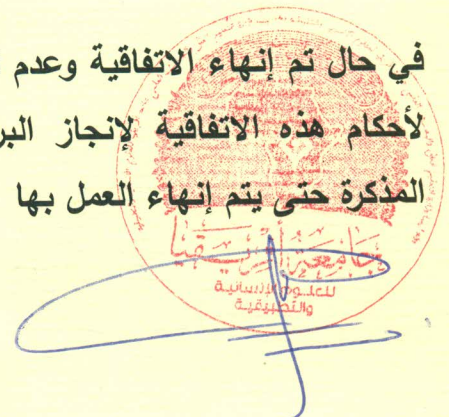 في حال تم إنهاء الاتفاقية وعدم
لأحكام هذه الاتفاقية لإنجاز البر
المذكرة حتى يتم إنهاء العمل بها
جامعة إفريقيا
للعلوم الإنسانية
والتطبيقية